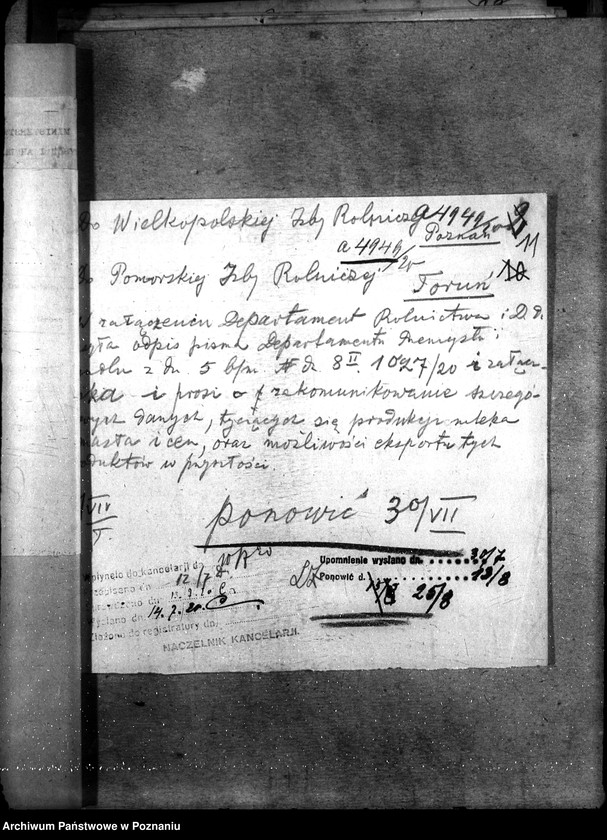 Do Wielkopolskiej Izby Rolniczej a 4949/20
Poznań
11
a 4949/20
Do Pomorskiej Izby Rolniczej
Toruń 10
W załączeniu Departament Rolnictwa i D. P.
odpis pisma Departamentu Przemysłu i
z dn. 5 bm. № dz. 8 II. 1027/20 i załącz-
i prosi o zakomunikowanie szczegó-
łowych danych, tyczących się produkcji mleka
masła i cen, oraz możliwości eksportu tych
produktów w przyszłości.
VII
ponowić 30/VII
Wpłynęło do kancelarji dn.
12/7
Wysłano dn. 14.7.20.
Złożono do registratury dn.
NACZELNIK KANCELARJI.
Upomnienie wysłano dn. 30/7
Ponowić d. 12/8
25/8
Archiwum Państwowe w Poznaniu